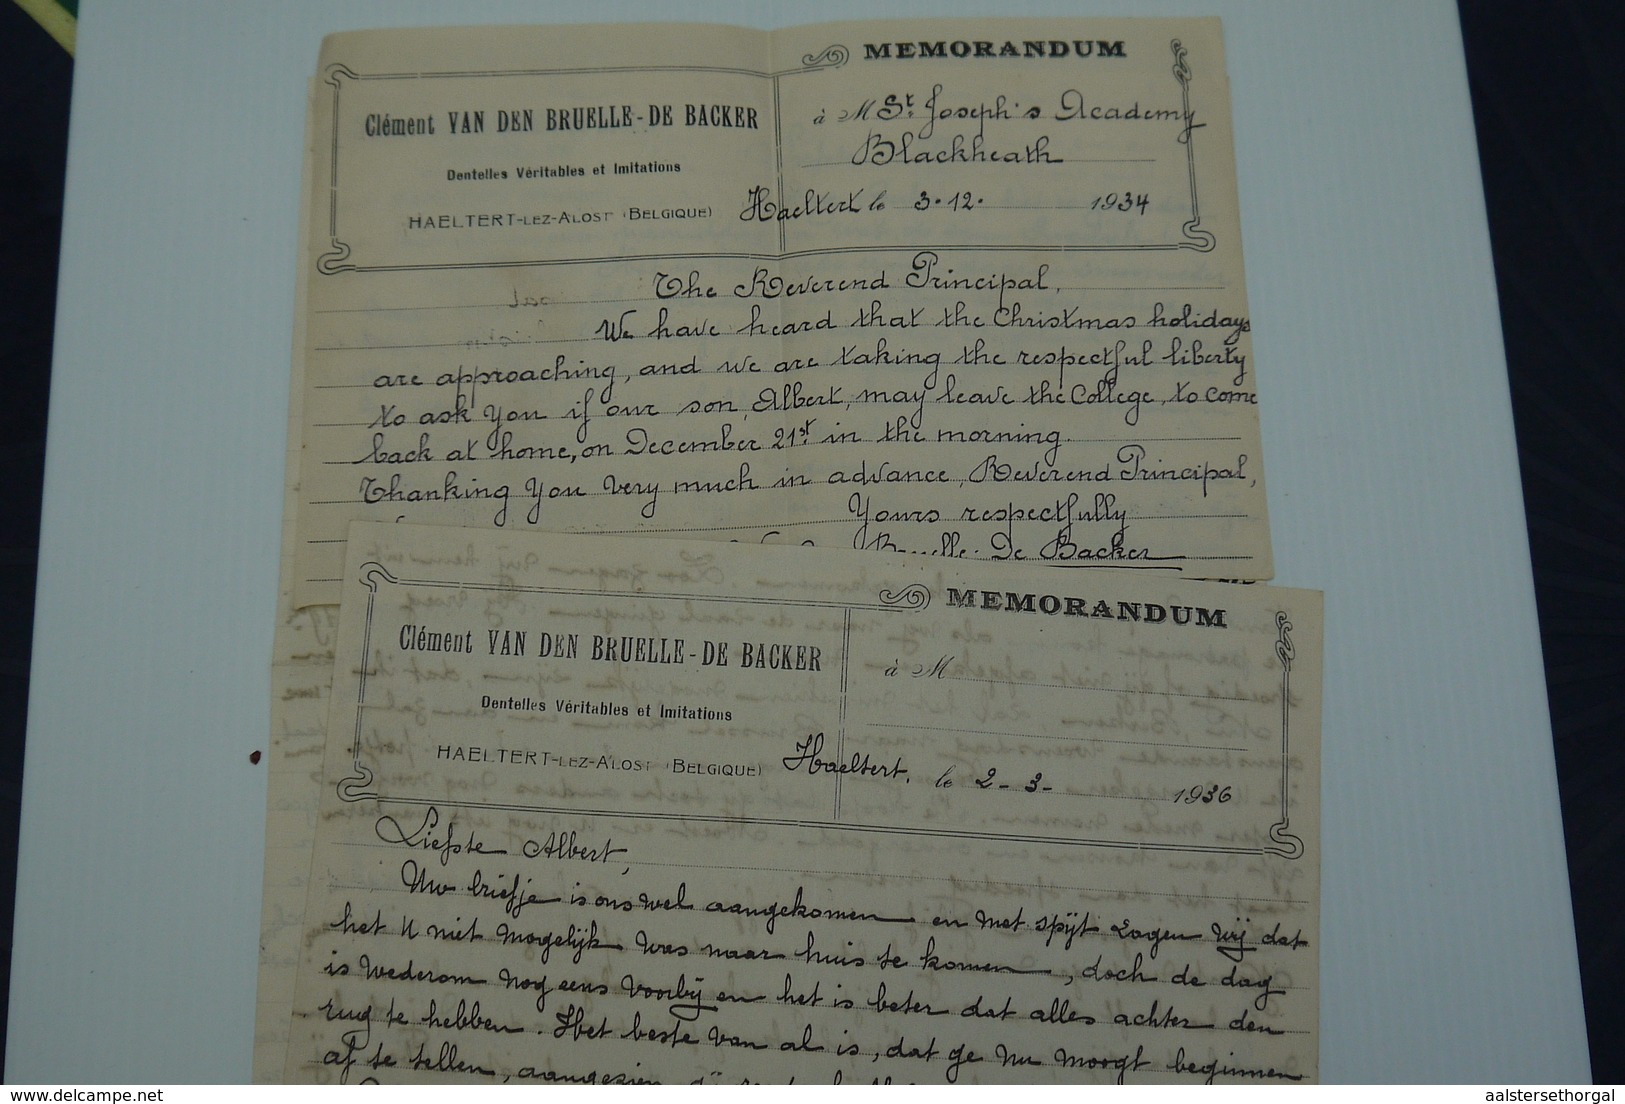 MEMORANDUM
Clément VAN DEN BRUELLE-DE BACKER
à M St. Joseph's Academy
Blackheath
Dentelles Véritables et Imitations
HAELTERT-LEZ-ALOST (BELGIQUE)
Haeltert le 3.12. 1934
The Reverend Principal,
We have heard that the Christmas holidays
are approaching, and we are taking the respectful liberty
to ask you if our son, Albert, may leave the College, to come
back at home, on December 21st. in the morning.
Thanking you very much in advance, Reverend Principal,
Yours respectfully
De Backer
MEMORANDUM
Clément VAN DEN BRUELLE-DE BACKER
à M
Dentelles Véritables et Imitations
HAELTERT-LEZ-ALOST (BELGIQUE)
Haeltert, le 2-3- 1936
Liefste Albert,
Uw briefje is ons wel aangekomen en met spijt zagen wij dat
het U niet mogelijk was naar huis te komen, doch de dag
is wederom nog eens voorbij en het is beter dat alles achter den
rug te hebben. Het beste van al is, dat ge nu moogt beginnen
af te tellen, aangezien
aalstersethorgal